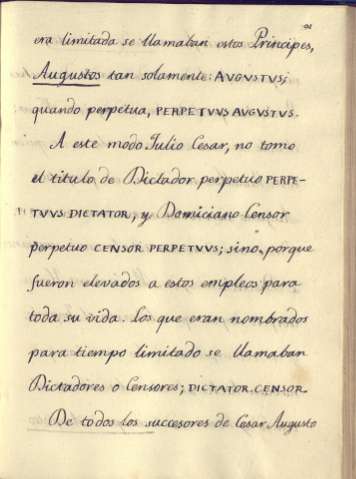 era limitada se llamaban estos Principes,
Augustos tan solamente: AUGUSTUS;
quando perpetua, PERPETUUS AUGUSTUS.
A este modo Julio Cesar, no tomo
el titulo de Dictador perpetuo PERPE-
TUUS DICTATOR, y Domiciano Censor
perpetuo CENSOR PERPETUUS; sino porque
fueron elevados a estos empleos para
toda su vida. los que eran nombrados
para tiempo limitado se llamaban
Dictadores o Censores; DICTATOR. CENSOR.
De todos los succesores de Cesar Augusto